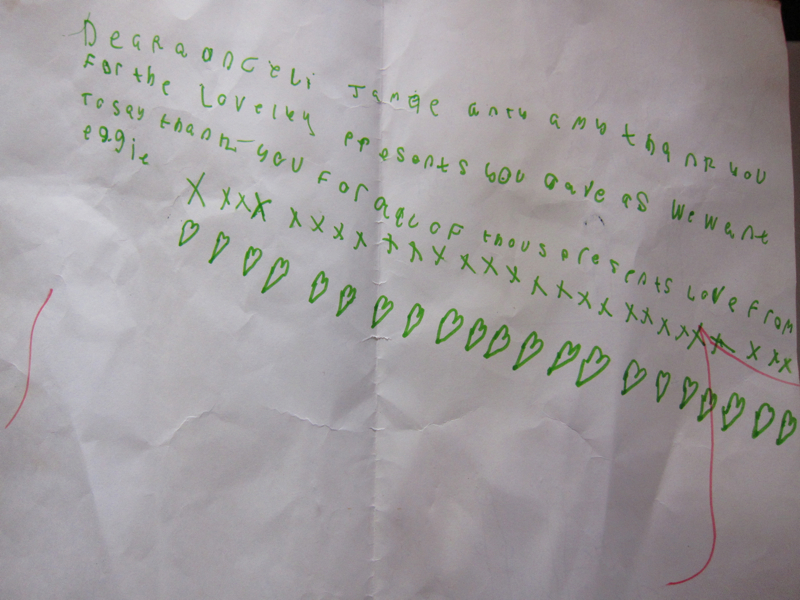 Deara angeli Jamie anty amy thank you
For the Lovelky presents you gave as We want
To say thank-you For all of thous presents Love From
eggie
X xxx x x x x x x x x x x x x x x x x x x x x x x x x